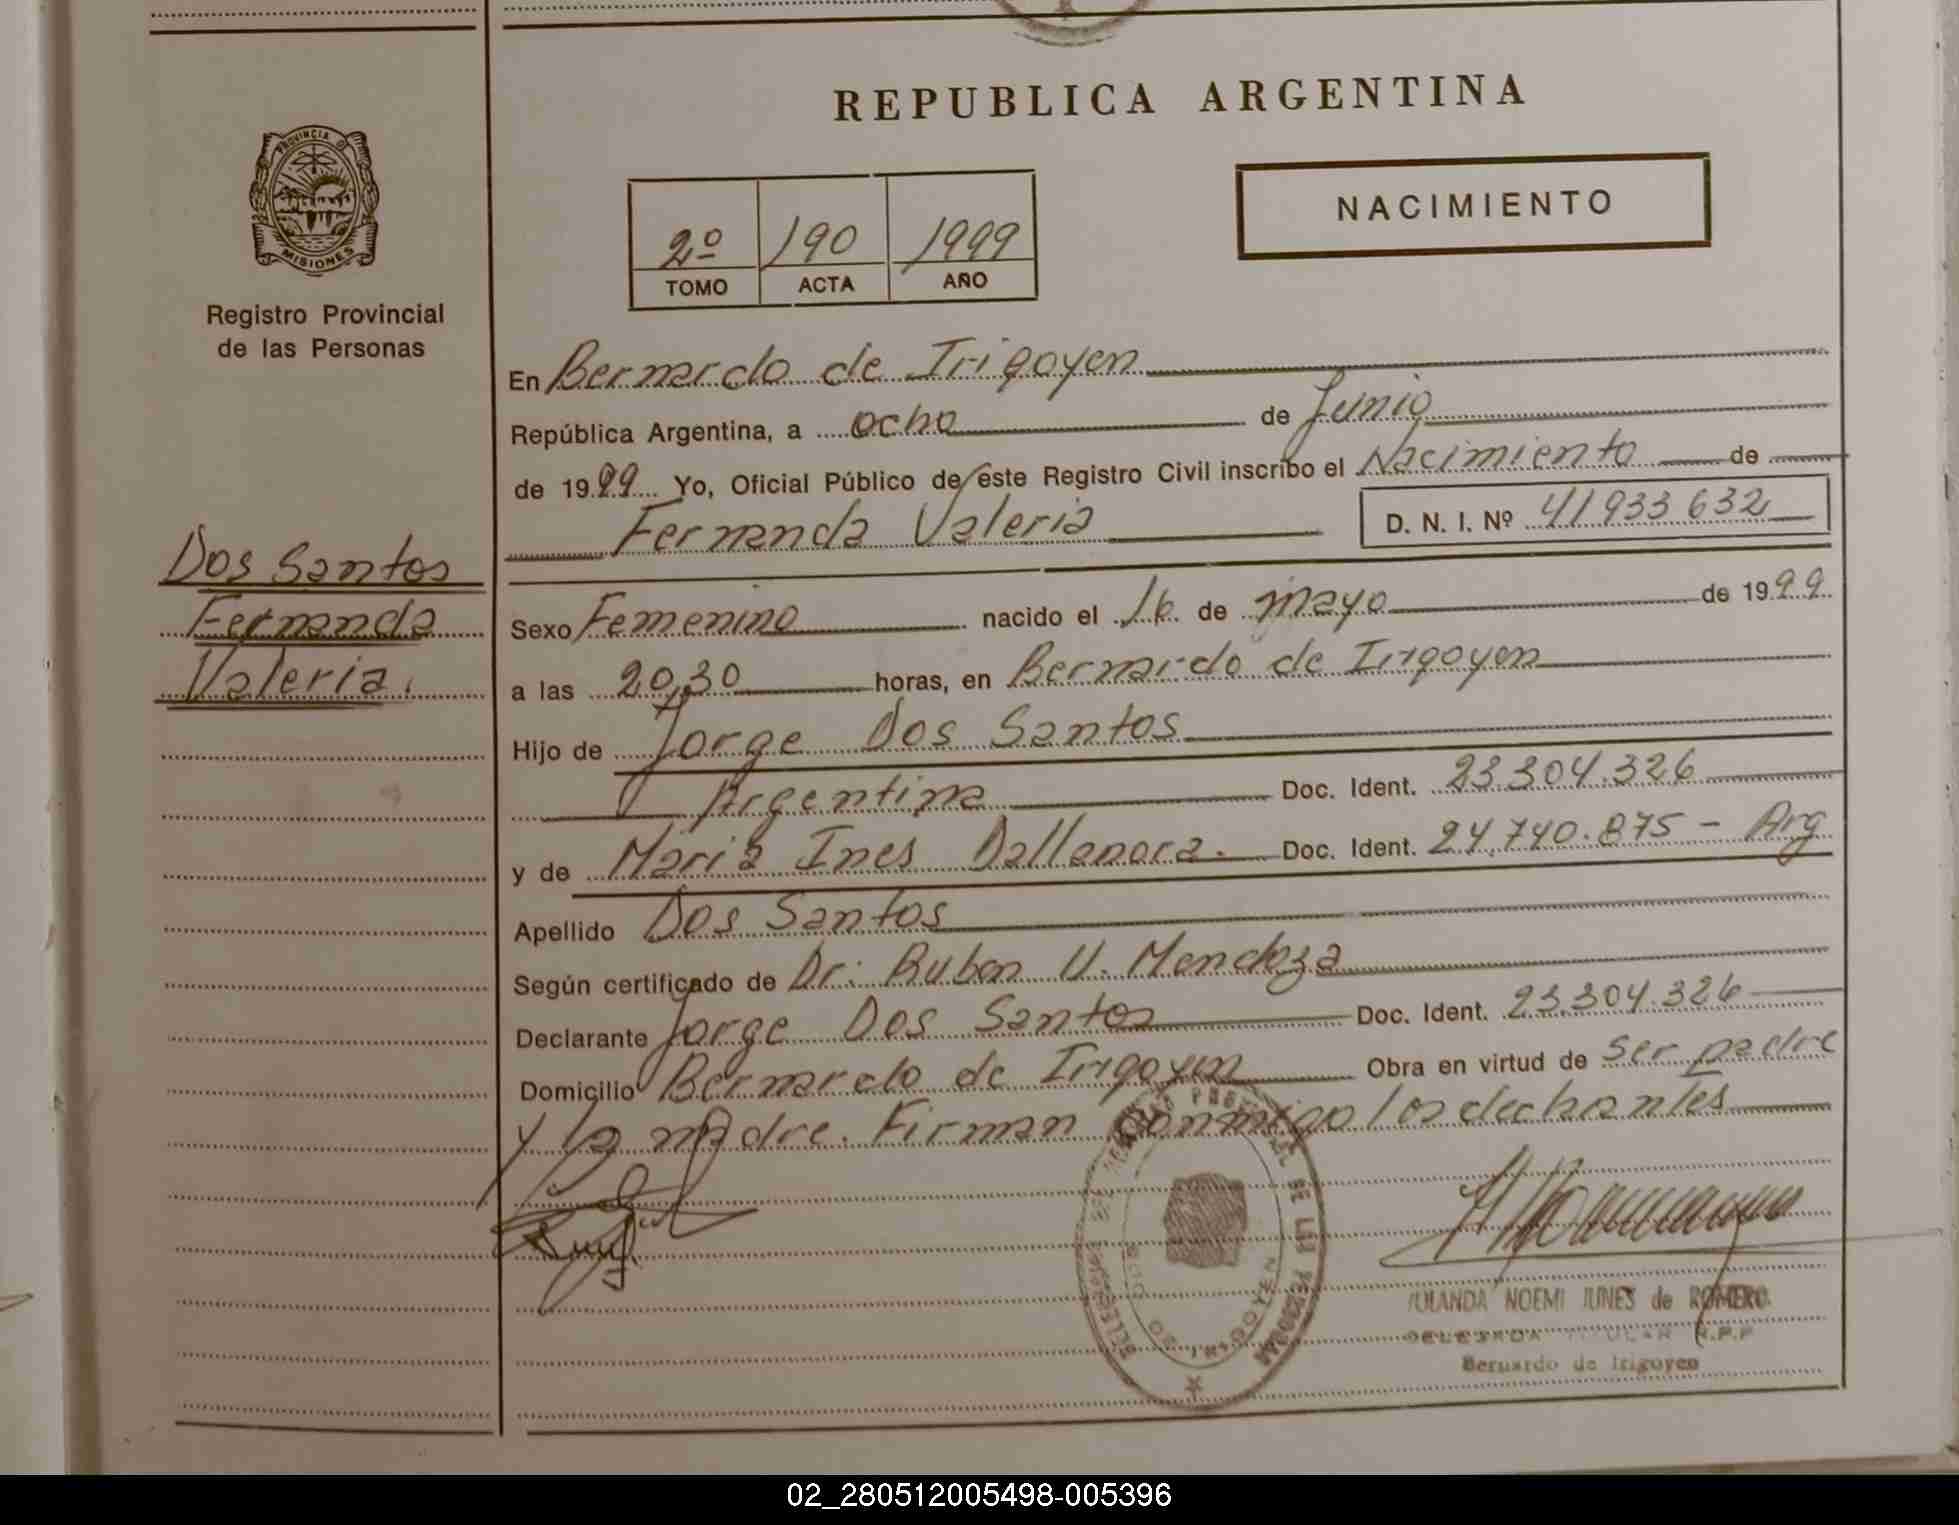 PROVINCIA D
MISIONES
Registro Provincial
de las Personas
Dos Santos
Fernanda
Valeria.
REPUBLICA ARGENTINA
2º 190 1999
TOMO ACTA AÑO
NACIMIENTO
En Bernardo de Irigoyen
República Argentina, a ocho de Junio
de 1999 Yo, Oficial Público de este Registro Civil inscribo el Nacimiento de
Fernanda Valeria D. N. I. Nº 41933632
Sexo Femenino nacido el 16 de mayo de 1999
a las 20,30 horas, en Bernardo de Irigoyen
Hijo de Jorge Dos Santos
Argentina Doc. Ident. 23.304.326
y de Maria Ines Dallanora. Doc. Ident. 24.740.875 - Arg
Apellido Dos Santos
Según certificado de Dr. Ruben U. Mendoza
Declarante Jorge Dos Santos Doc. Ident. 23.304.326
Domicilio Bernardo de Irigoyen Obra en virtud de ser padre
y la madre. Firman conmigo los declarantes
IRIGOYEN
YOLANDA NOEMI JUNES de ROMERO
DELEGADA TITULAR R.P.P
Bernardo de Irigoyen
02_280512005498-005396